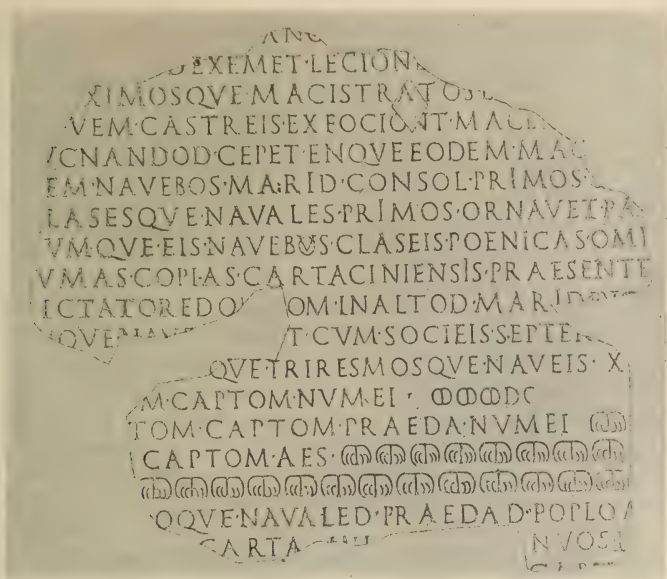 EXEMET·LECION
XIMOSQVE·MACISTRATOS
VEM·CASTREIS·EXFOCIONT·MACE
VCNANDOD·CEPET·ENQVE EODEM·MAC
EM·NAVEBOS·MARID·CONSOL·PRIMOS
LASESQVE·NAVALES·PRIMOS·ORNAVET·PA
VMQVE·EIS·NAVEBVS·CLASEIS·POENICAS·OM
VMAS·COPIAS·CARTACINIENSIS·PRAESENTE
ICTATORED·O OM·INALTOD·MARID
QVE T·CVM·SOCIEIS·SEPTE
QVE·TRIRESMOSQVE·NAVEIS·X
M·CAPTOM·NVMEI · ↀↀↀDC
TOM·CAPTOM·PRAEDA·NVMEI ↈ
CAPTOM·AES·ↈↈↈↈↈↈↈↈ
ↈↈↈↈↈↈↈↈↈↈↈↈↈ
OQVE·NAVALED·PRAEDAD·POPLO
CARTA NVOS